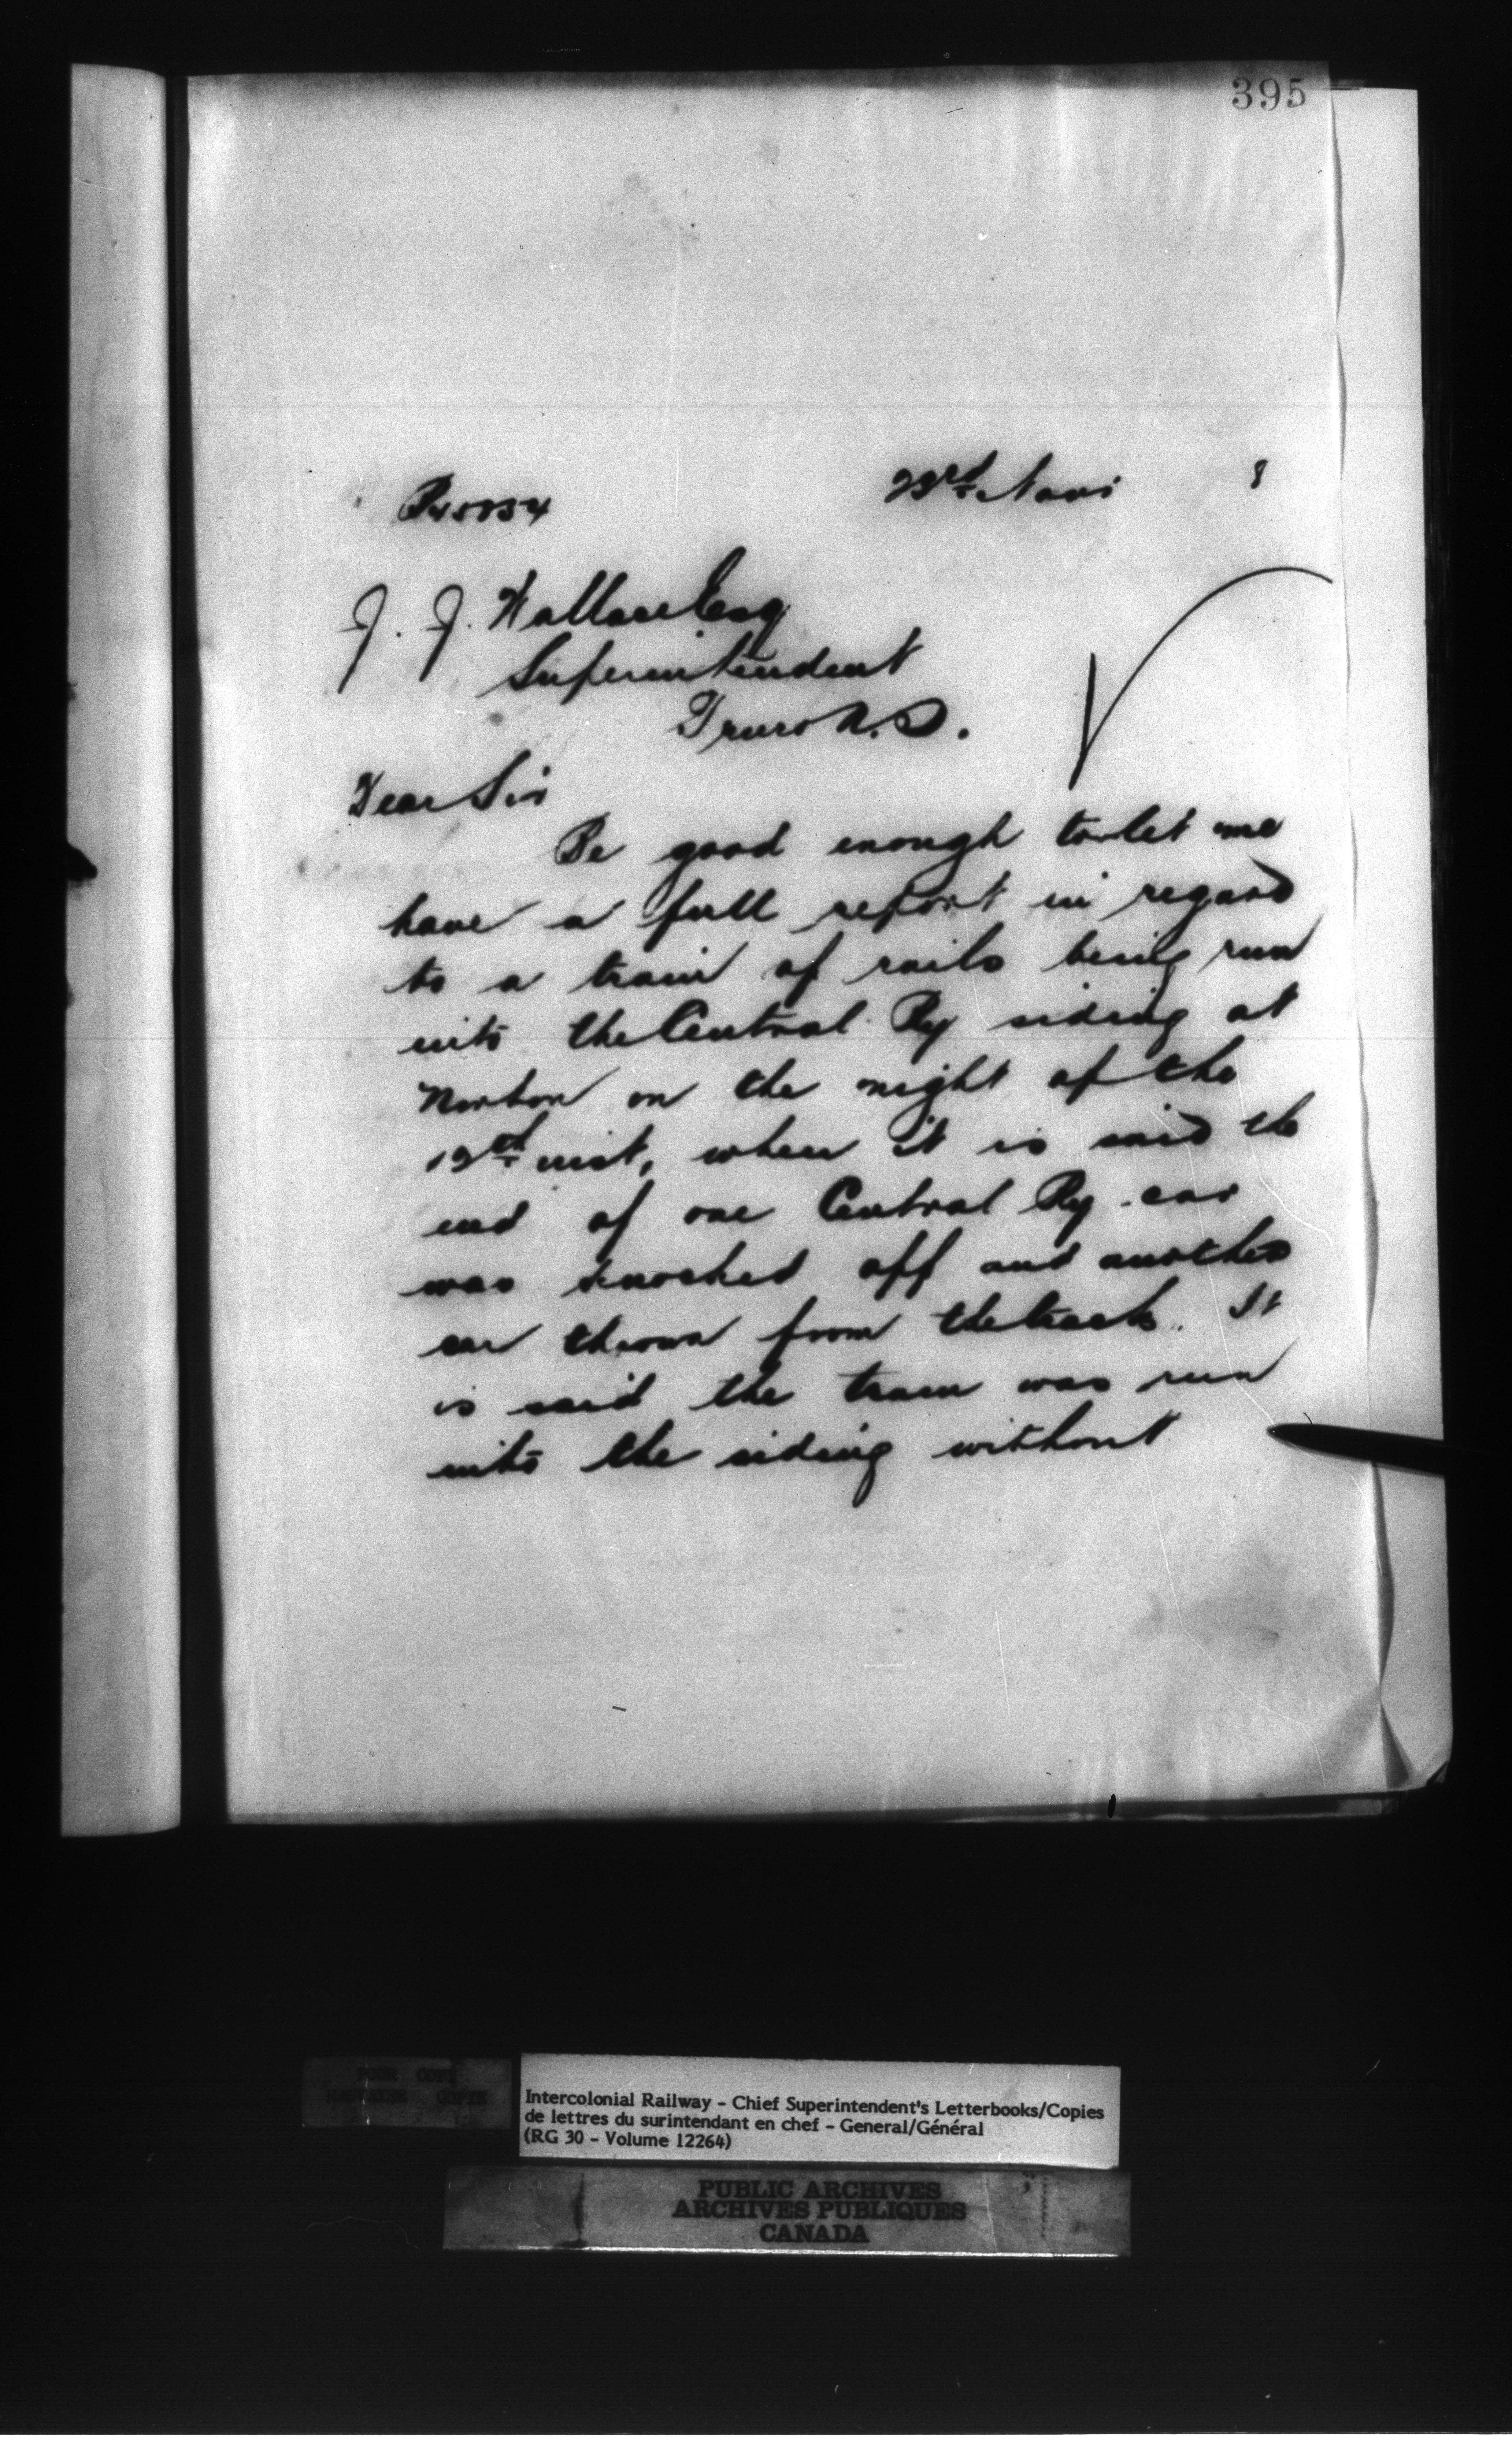 395
23rd Novr 8
J. J. Wallace Esq
Superintendent
Truro N.S.
Dear Sir
Be good enough to let me
have a full report in regard
to a train of rails being run
into the Central Ry siding at
Norton on the night of the
19th inst, when it is said the
end of one Central Ry car
was knocked off and another
car thrown from the track. It
is said the train was run
into the siding without
POOR COPY
MAUVAISE COPIE
Intercolonial Railway - Chief Superintendent's Letterbooks/Copies
de lettres du surintendant en chef - General/Général
(RG 30 - Volume 12264)
PUBLIC ARCHIVES
ARCHIVES PUBLIQUES
CANADA